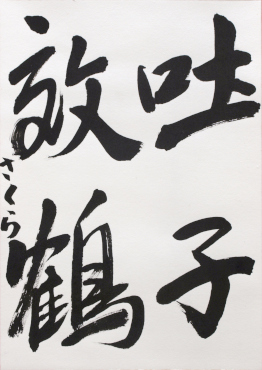 吐子
鶴
さくら